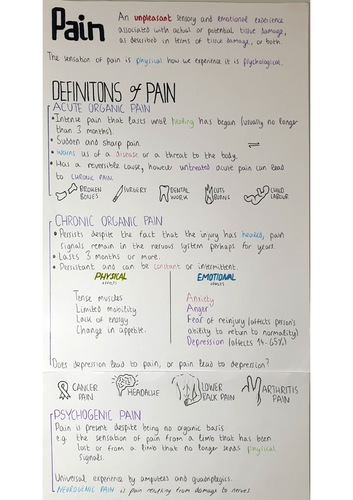 Pain
An unpleasant sensory and emotional experience
associated with actual or potential tissue damage,
as described in terms of tissue damage, or both.
The sensation of pain is physical how we experience it is psychological.
DEFINITONS of PAIN
ACUTE ORGANIC PAIN
• Intense pain that lasts until healing has began (usually no longer
than 3 months).
• Sudden and sharp pain.
• Warns us of a disease or a threat to the body.
• Has a reversible cause, however untreated acute pain can lead
to CHRONIC PAIN.
BROKEN BONES
SURGERY
DENTAL WORK
CUTS BURNS
CHILD LABOUR
CHRONIC ORGANIC PAIN
• Persists despite the fact that the injury has healed, pain
signals remain in the nervous system perhaps for years.
• Lasts 3 months or more.
• Persistant and can be constant or intermittent.
PHYSICAL
effects
Tense muscles
Limited mobility
Lack of energy
Change in appetite.
EMOTIONAL
effects
Anxiety
Anger
Fear of reinjury (affects person's
ability to return to normality)
Depression (affects 44-65%)
Does depression lead to pain, or pain lead to depression?
CANCER PAIN
HEADACHE
LOWER BACK PAIN
ARTHRITIS PAIN
PSYCHOGENIC PAIN
Pain is present despite being no organic basis.
e.g. the sensation of pain from a limb that has been
lost or from a limb that no longer sends physical
signals.
Universal experience by amputees and quadriplegics.
NEUROGENIC PAIN is pain resulting from damage to nerves